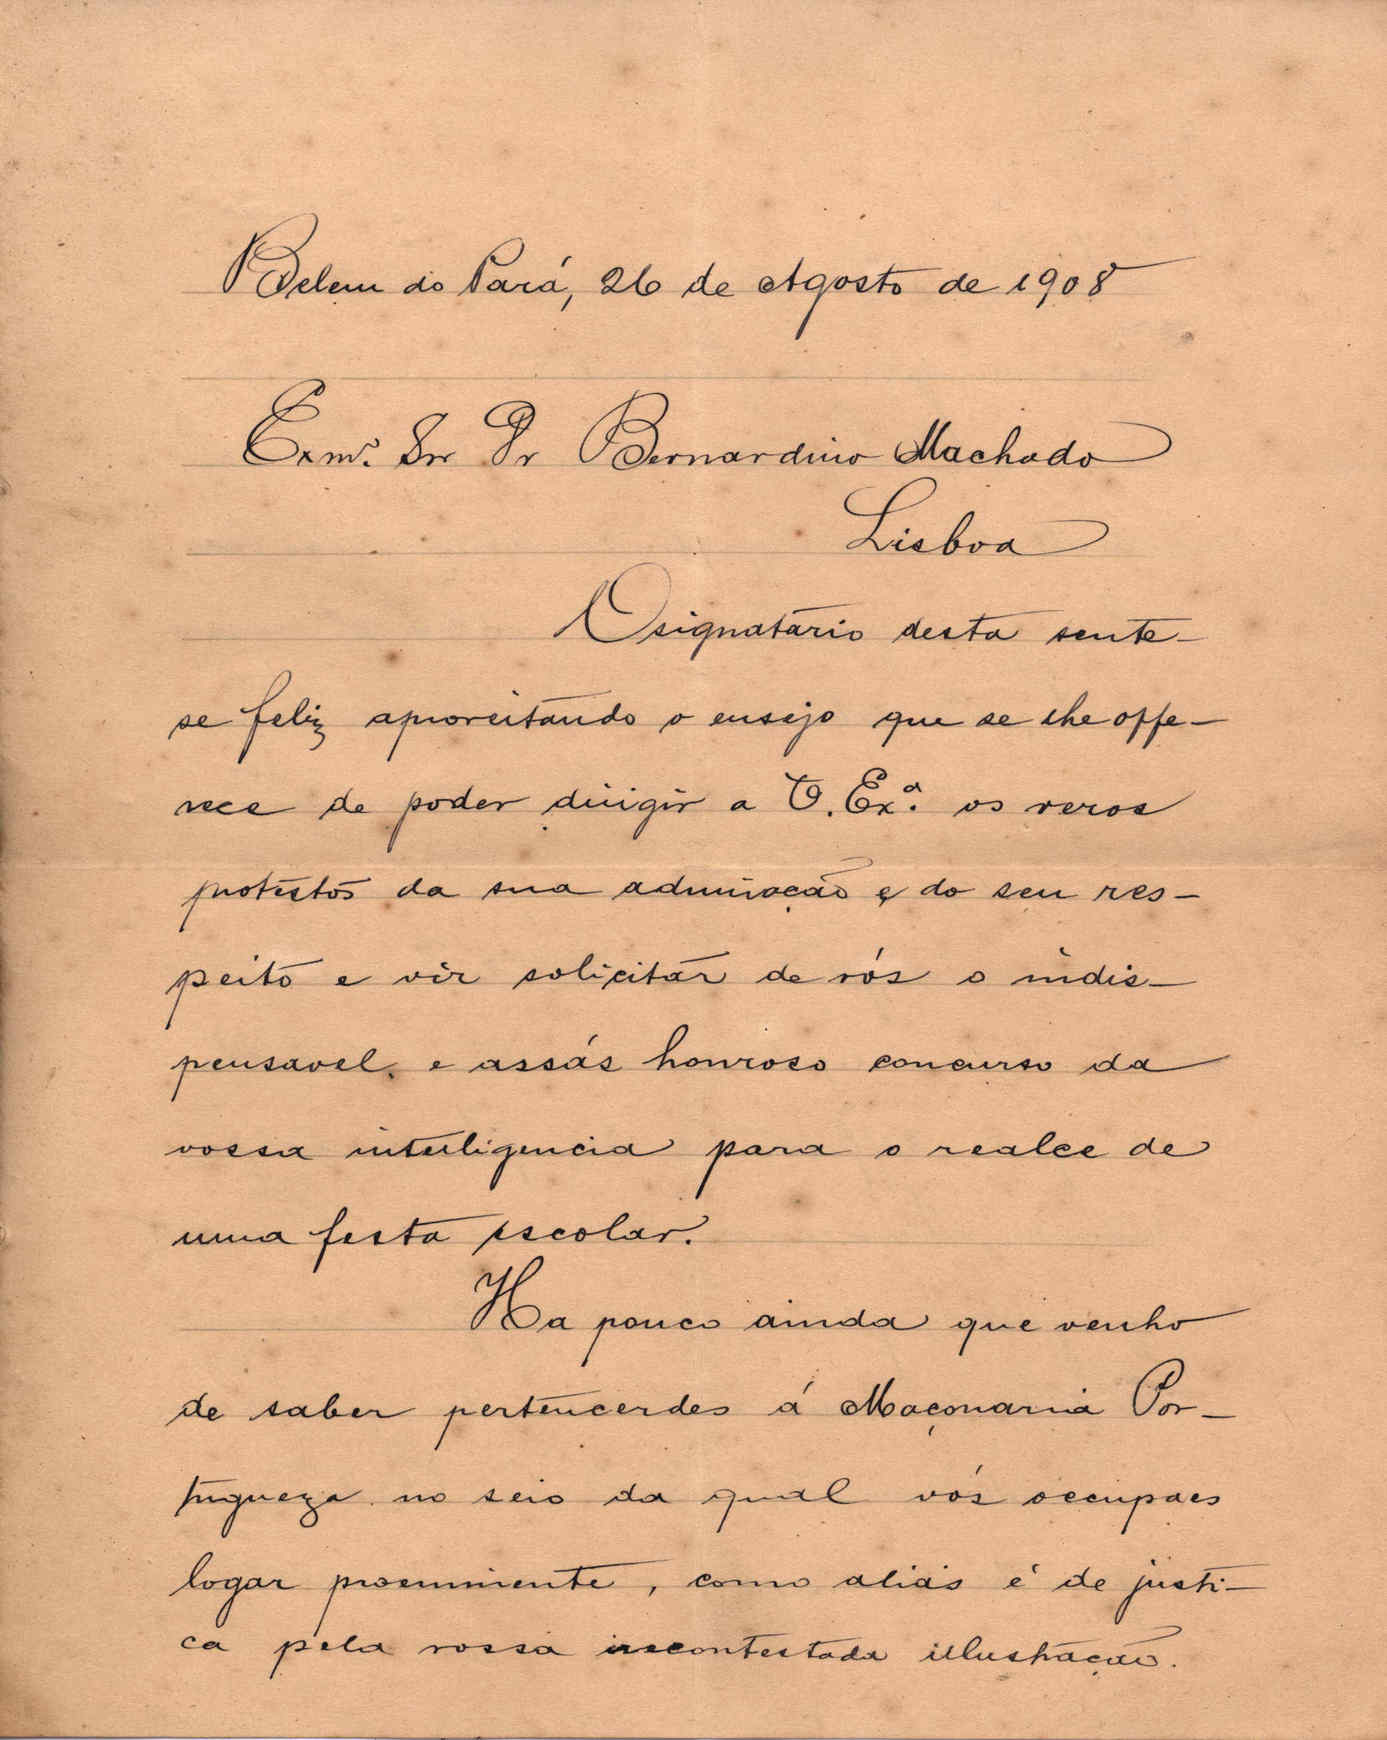 Belem do Pará, 26 de Agosto de 1908
Exmº. Snr Dr Bernardino Machado
Lisboa
O signatario desta sente-
se feliz aproveitando o ensejo que se lhe offe-
rece de poder dirigir a V. Exª. os veros
protestos da sua admiração e do seu res-
peito e vir solicitar de vós o indis-
pensavel, e assás honroso concurso da
vossa intelligencia para o realce de
uma festa escolar.
Ha pouco ainda que venho
de saber pertencerdes á Maçonaria Por-
tugueza no seio da qual vós occupaes
logar proeminente, como aliás é de justi-
ca pela vossa incontestada illustração.